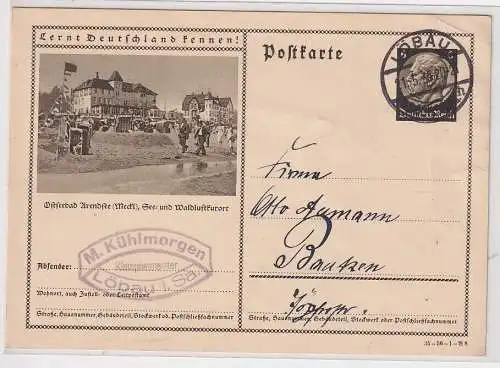 Lernt Deutschland kennen!
Ostseebad Arendsee (Meckl), See- und Waldluftkurort
M. Kühlmorgen
Klempnermeister
Löbau i. Sa.
Absender:
Wohnort, auch Zustell- oder Leitpostamt
Straße, Hausnummer, Gebäudeteil, Stockwerk od. Postschließfachnummer
Postkarte
LÖBAU
Deutsches Reich
Firma
Otto
Bautzen
Straße, Hausnummer, Gebäudeteil, Stockwerk oder Postschließfachnummer